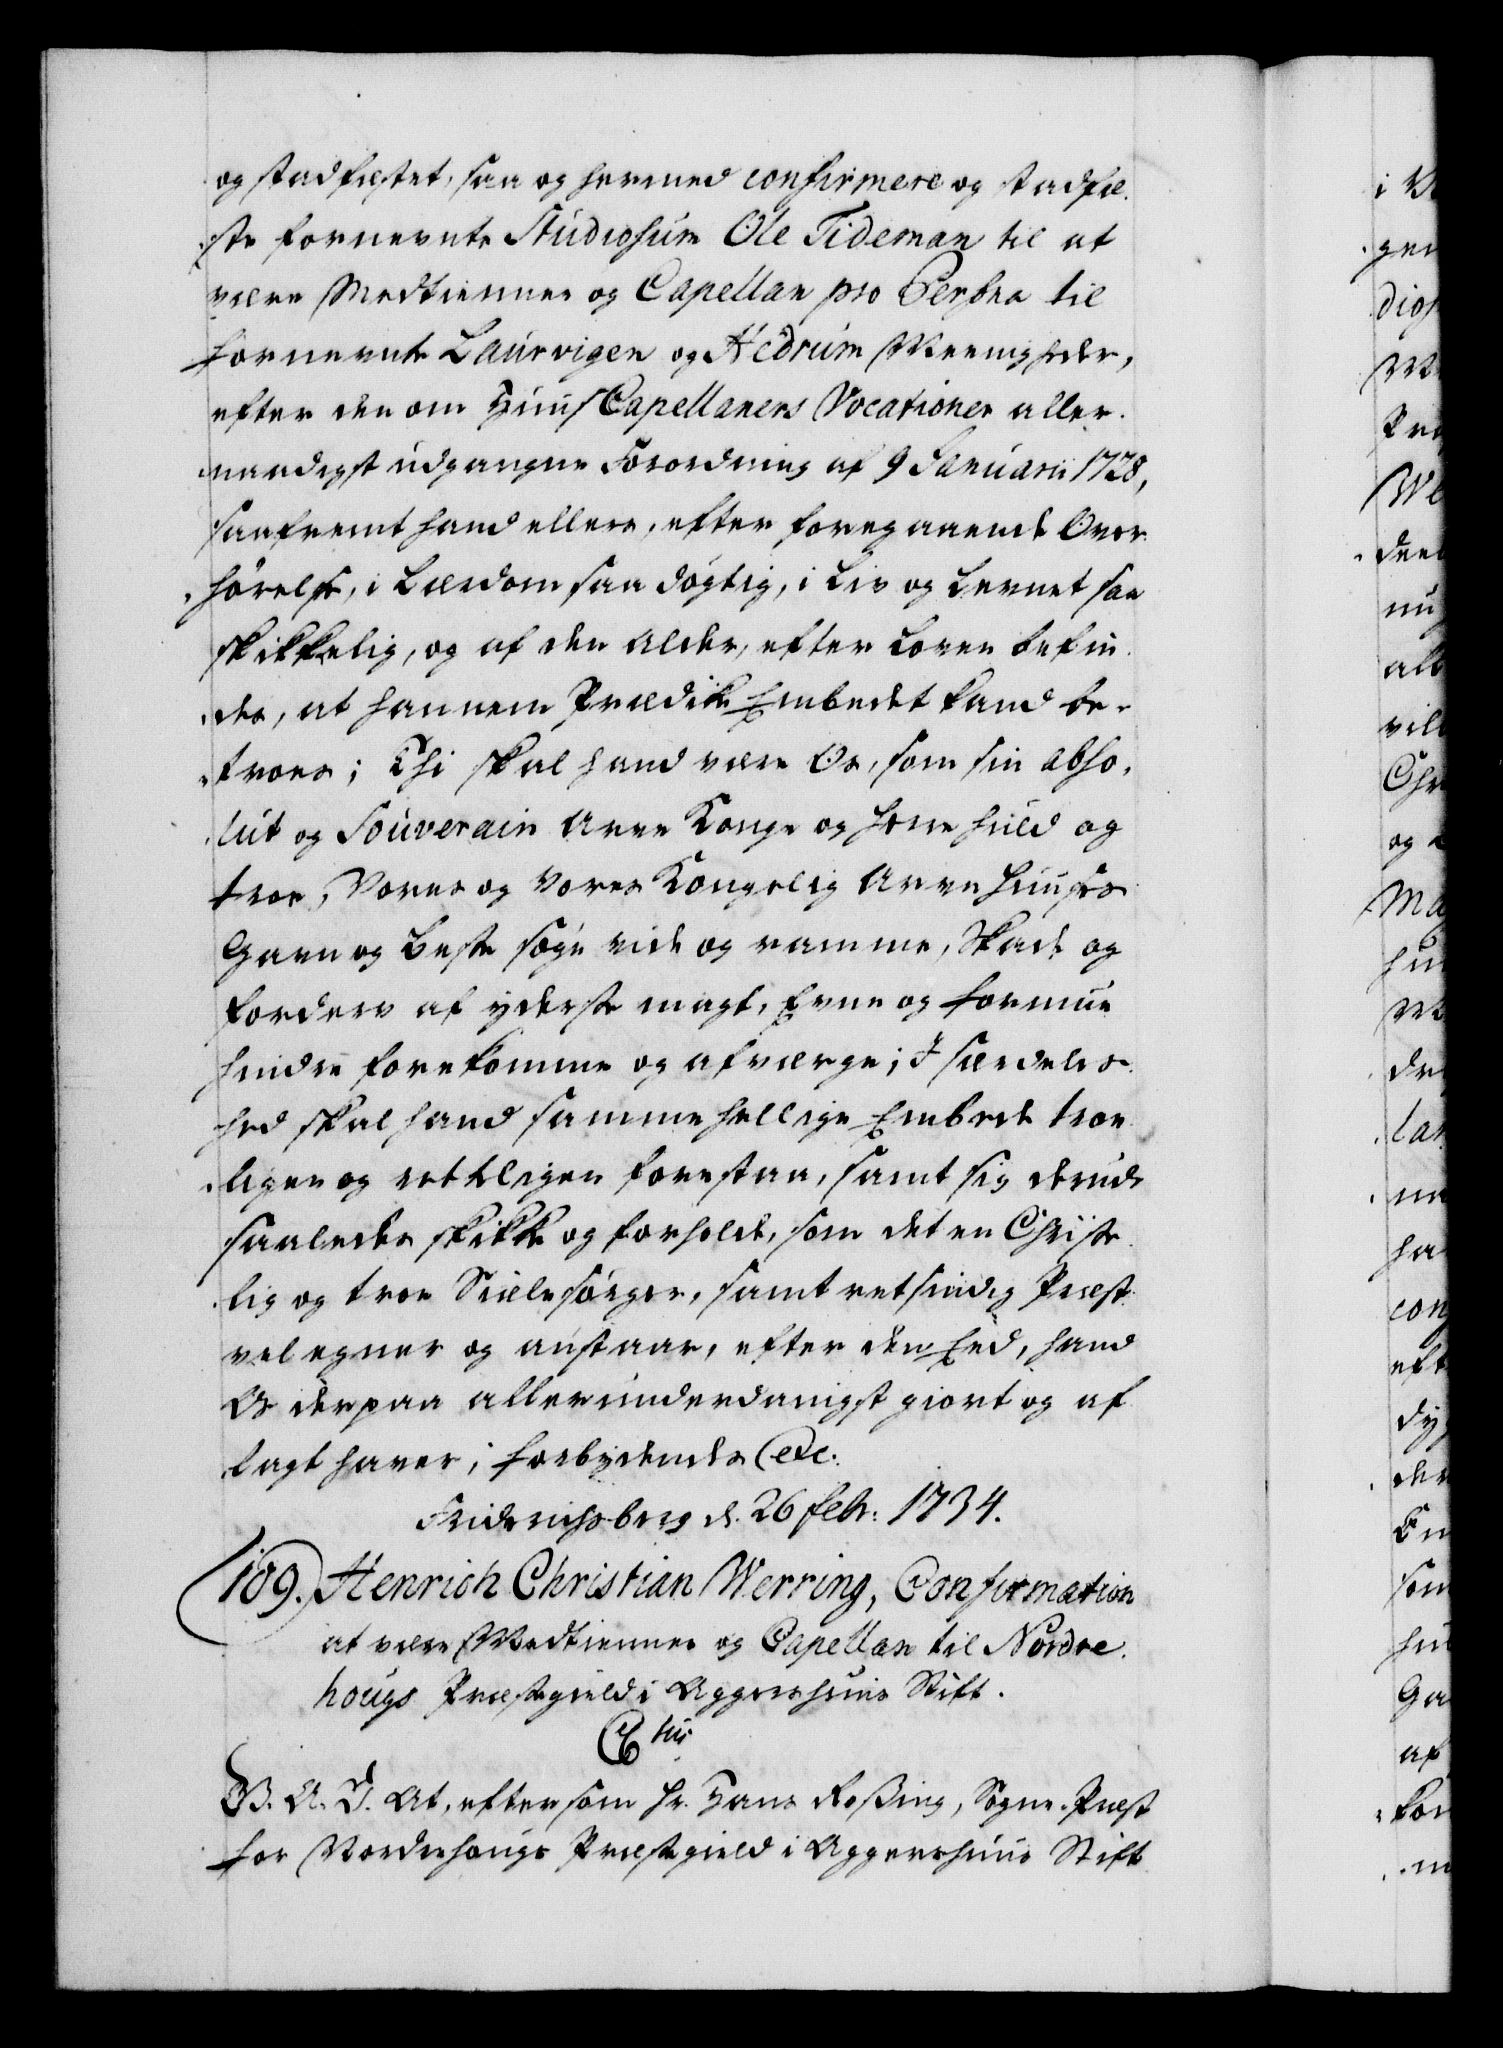 og stadfæstet, saa og hermed confirmere og stadfæ-
ste fornevnte Studiosum Ole Tideman til at
være Medtienner og Capellan pro Persona til
fornevnte Laurvigen og Hedrum Meenigheder,
efter den om Huus Capellaners Vocationer aller-
naadigst udgangne Forordning af 9 Januarii 1728,
saafremt hand ellers, efter foregaaende Over-
hørelse, i Lærdom saa døgtig, i Liv og Levnet saa
skikkelig, og af den Alder, efter Loven befin-
des, at hannem Prædike Embedet kand be-
troes; Thi skal hand være Os, som sin abso-
lut og Souverain Arve Konge og Herre huld og
troe, Vores og Vores Kongelig Arve Huuses
Gavn og Beste søge vide og ramme, Skade og
Forderv af yderste magt, Evne og formue
hindre forekomme og afværge; I særdeles-
hed skal hand samme hellige Embede troe-
ligen og retteligen forestaa, samt sig derudi
saaledes skikke og forholde, som det en Christe-
lig og troe Siælesørger, samt retsindig Præst
vel egner og anstaar, efter den Eed, hand
Os derpaa allerunderdanigst giort og af-
lagt haver; forbydendes etc.
Friderichsberg d. 26 Febr: 1734.
109. Henrich Christian Werring, Confirmation
at være Medtienner og Capellan til Nordre-
hougs Præstegield i Aggershuus Stift.
C 6tus
G. A. V. At, eftersom Hr. Hans Roßing, Sogne-Præst
for Nordrehougs Præstegield i Aggershuus Stift